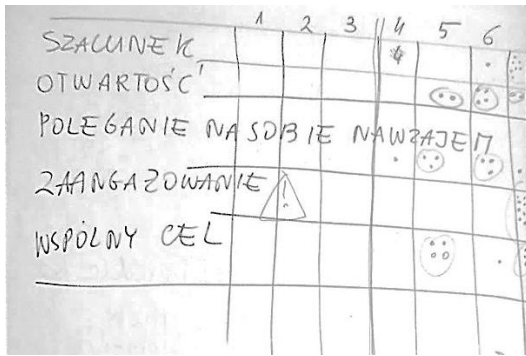 1 2 3 4 5 6
SZACUNEK
OTWARTOŚĆ
POLEGANIE NA SOBIE NAWZAJEM
ZAANGAŻOWANIE !
WSPÓLNY CEL